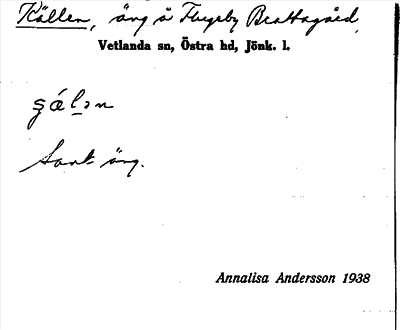 Källen, äng å Flugeby Brattagård,
Vetlanda sn, Östra hd, Jönk. l.
äng.
Annalisa Andersson 1938